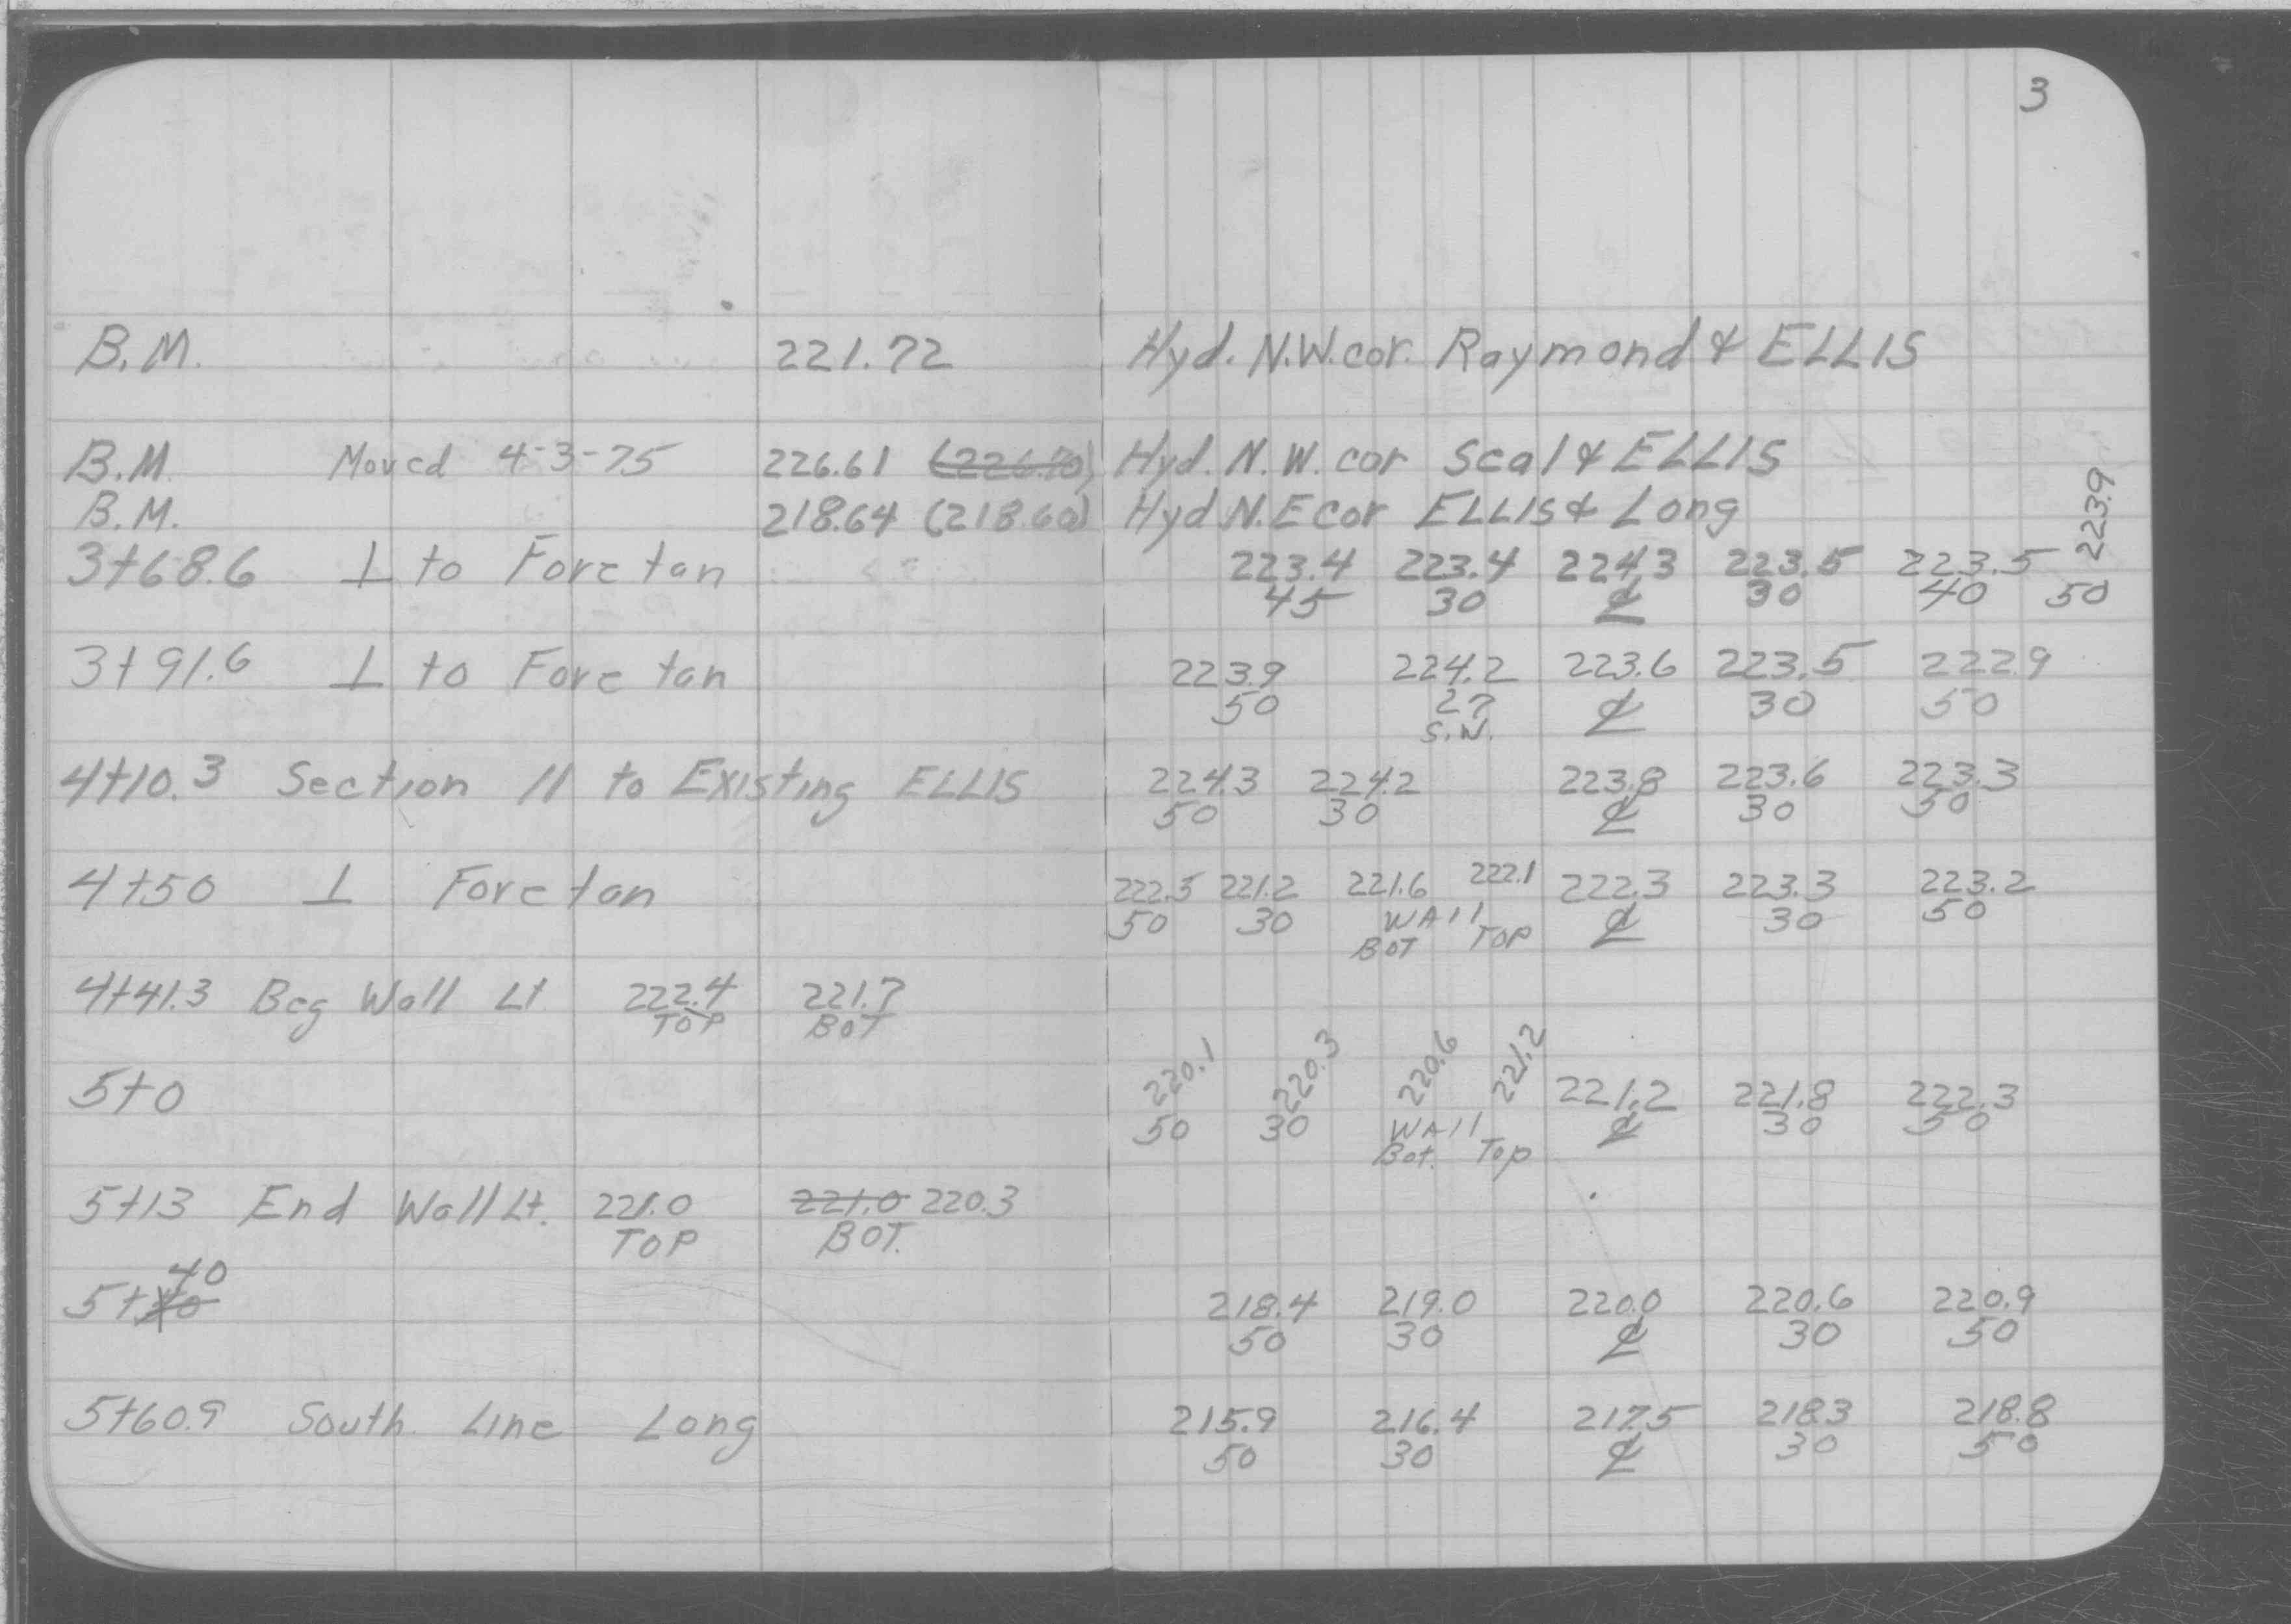 3
B.M. 221.72 Hyd. N.W. cor. Raymond & ELLIS
B.M. Moved 4-3-75 226.61 (226.70) Hyd. N.W. cor Seal & ELLIS
B.M. 218.64 (218.60) Hyd N.E cor ELLIS & Long
3+68.6 ⊥ to Fore tan 223.4 223.4 224.3 223.5 223.5 223.9
45 30 ℄ 30 40 50
3+91.6 ⊥ to Fore tan 223.9 224.2 223.6 223.5 222.9
50 27 ℄ 30 50
S.W.
4+10.3 Section // to Existing ELLIS 224.3 224.2 223.8 223.6 223.3
50 30 ℄ 30 50
4+50 ⊥ Fore tan 222.5 221.2 221.6 222.1 222.3 223.3 223.2
50 30 WAll ℄ 30 50
BOT TOP
4+41.3 Beg Wall Lt 222.4 221.7
TOP BOT
5+0 220.1 220.3 220.6 221.2 221.2 221.8 222.3
50 30 WAll ℄ 30 50
Bot. Top
5+13 End Wall Lt. 221.0 221.0 220.3
TOP BOT.
40
5+ 218.4 219.0 220.0 220.6 220.9
50 30 ℄ 30 50
5+60.9 South Line Long 215.9 216.4 217.5 218.3 218.8
50 30 ℄ 30 50